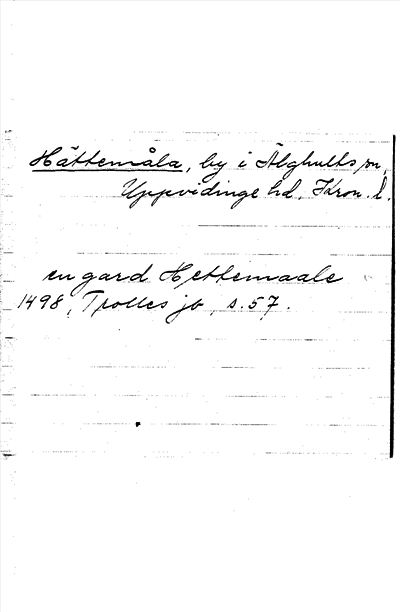 Hättemåla, by i Älghults sn,
Uppvidinge hd, Kron. l.
en gard Hettemaale
1498, Trolles jb, s. 57.